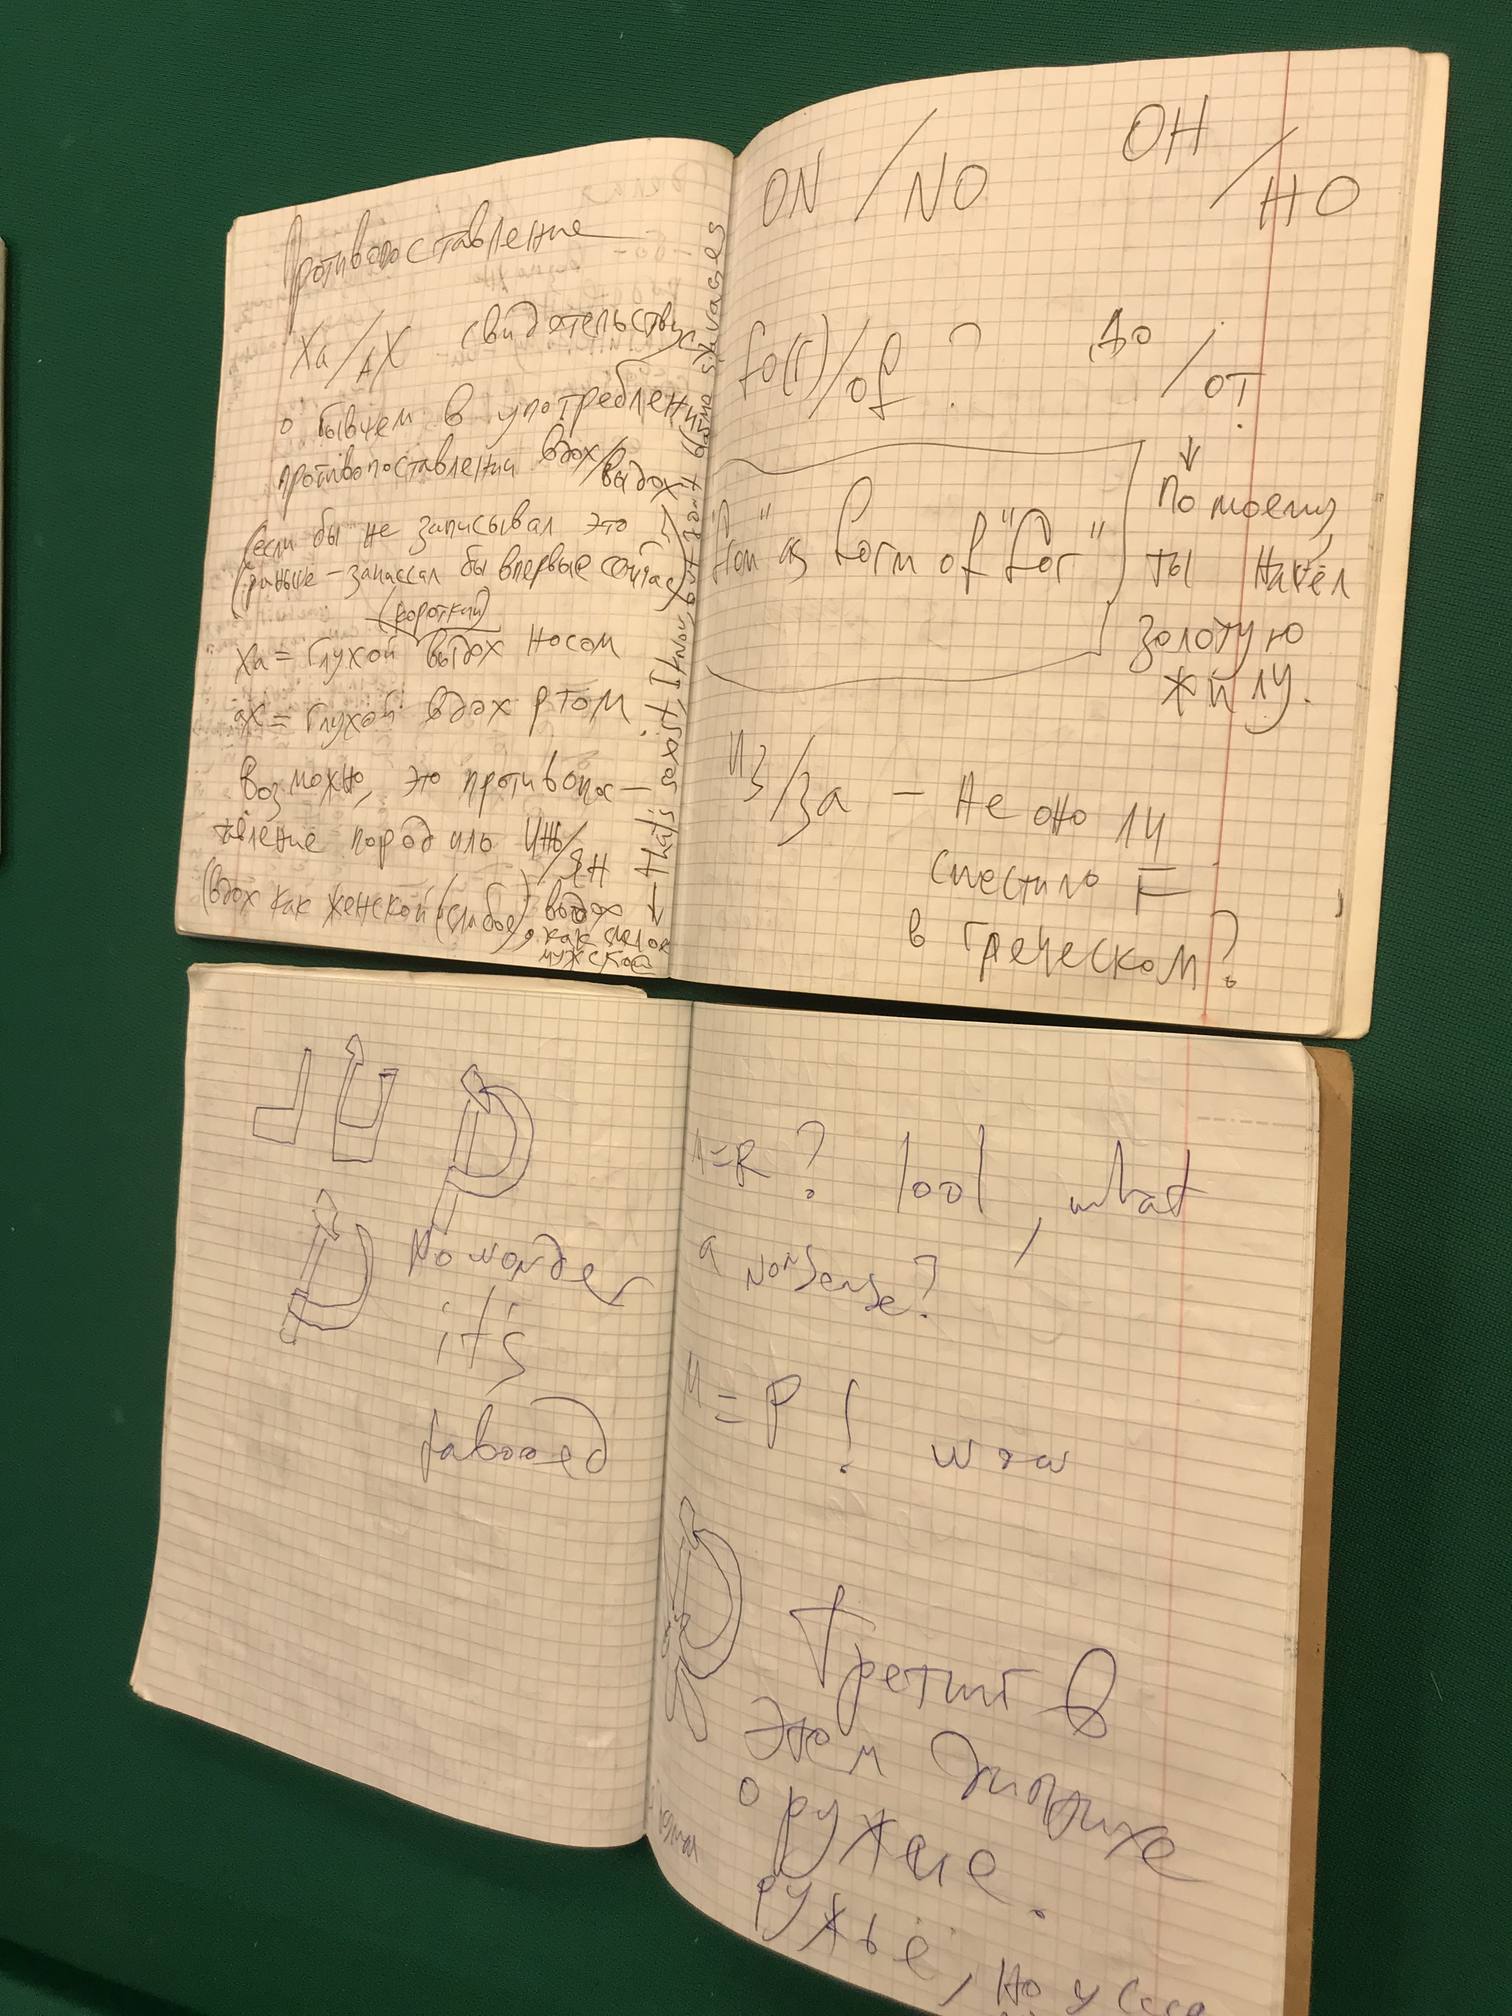 Противопоставление
Ха/АХ свидетельствует
о бывшем в употреблении
противопоставлении вдох/выдох
(если бы не записывал это
раньше - записал бы впервые сейчас)
(короткий)
Ха = глухой выдох носом
ах = глухой вдох ртом.
Возможно, это противопос-
тавление породило ИНЬ/ЯН
(вдох как женской (слабое), выдох
как
мужское
that's sexist, I know, but don't blame savages
ON / NO OH / HO
fo(r)/of ? до / от
↓
" as form of "for"
По моему,
ты нашёл
золотую
жилу.
из/за - не оно ли
сместило F
в греческом?
No wonder
it's
tabooed
=R ? lool, what
a nonsense?
= P ! wow
Третий в
этом диптихе
оружие.
ружьё, но у